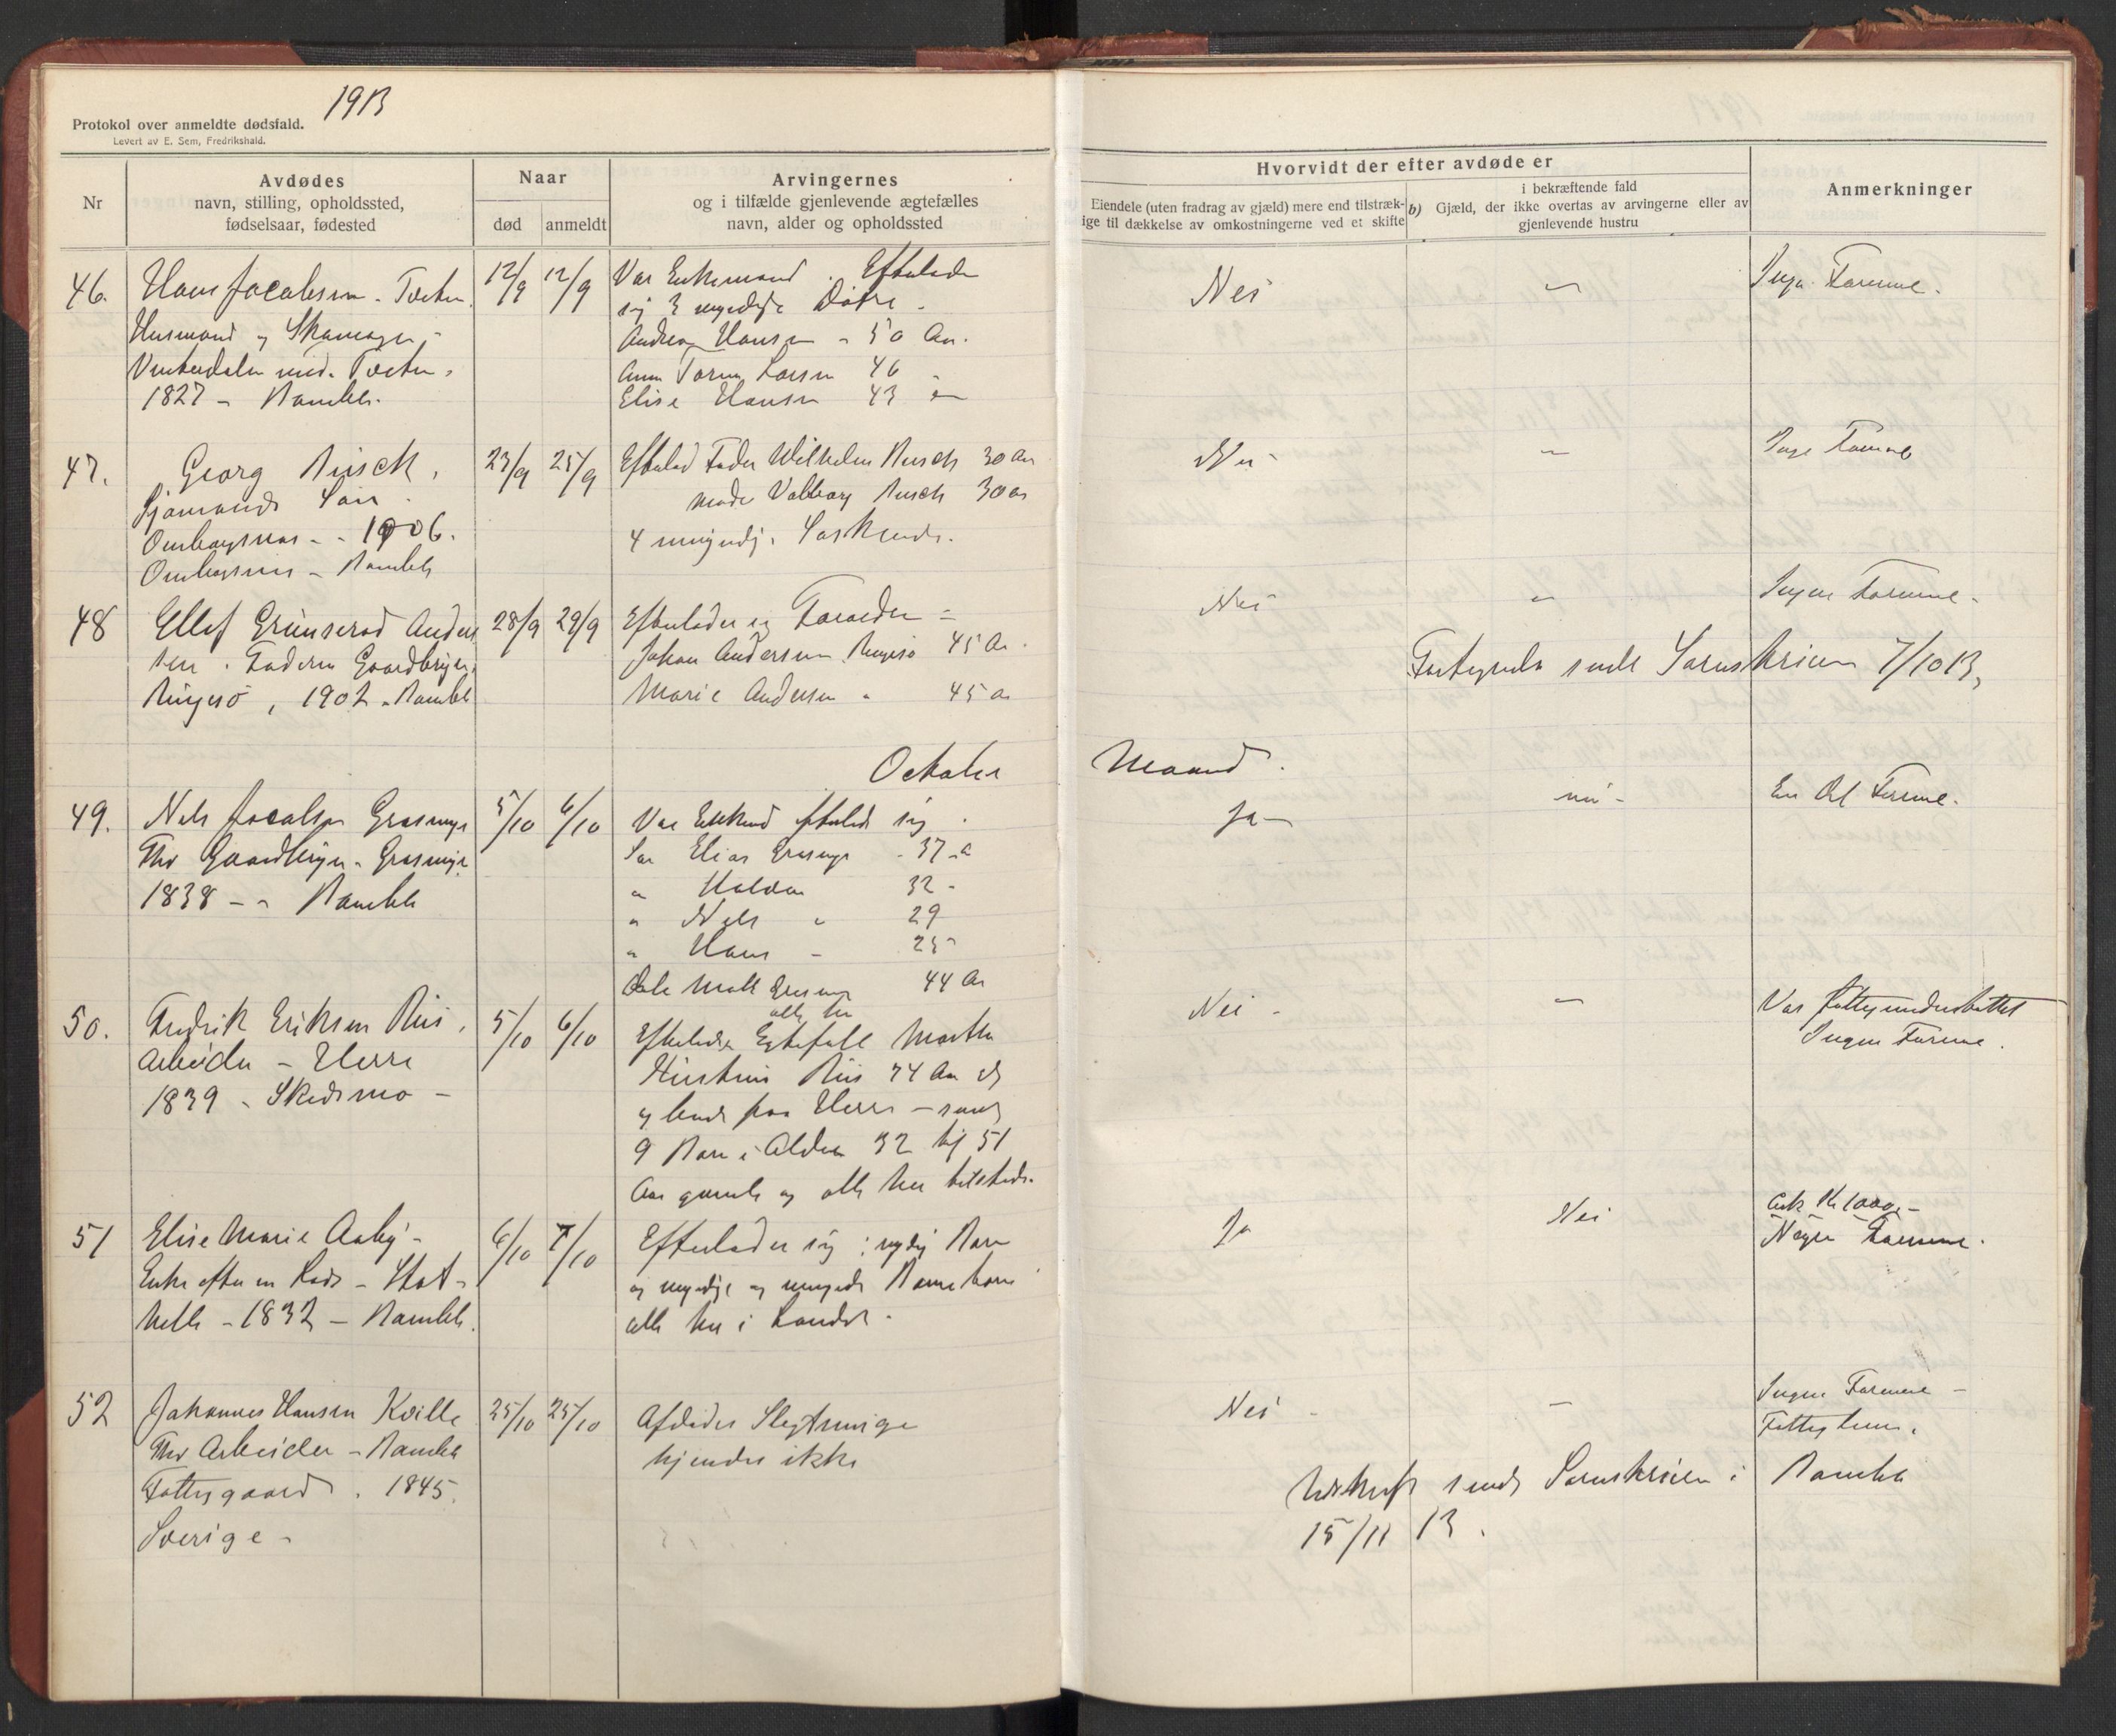 1913
Protokol over anmeldte dødsfald.
Levert av E. Sem, Fredrikshald.
Nr
Avdødes
navn, stilling, opholdssted,
fødselsaar, fødested
Naar
død
anmeldt
Arvingernes
og i tilfælde gjenlevende ægtefælles
navn, alder og opholdssted
Hvorvidt der efter avdøde er
Eiendele (uten fradrag av gjæld) mere end tilstræk-
ige til dækkelse av omkostningerne ved et skifte
b)
i bekræftende fald
Gjæld, der ikke overtas av arvingerne eller av
gjenlevende hustru
Anmerkninger
46.
Hans Jacobsen - Tveten
Husmand og
Tveten
1827 - Bamble.
12/9
12/9
Var Enkemand . Efterlader
sig 3 myndige Døtre -
Andrea Hansen - 50 Aar.
Anna Larsen 46 -
Elise Hansen 43
Nei
Ingen Formue.
47.
Georg Rusch.
Sjømands Søn
1906.
Bamble
23/9
25/9
Efterlod Fader Wilhelm Rusch 30 Aar
Moder Valborg Rusch 30 aar
4 umyndj. Søskende.
Nei
Ingen Formue
48
Ellef Grünserød Anders
sen . Faderen Gaardbruger,
1902 - Bamble
28/9
29/9
Efterlader sig Forældre -
Johan Andersen 45 Aar.
Marie Andersen - 45 a
Nei
Ingen Formue -
sendt Sorenskriveren 7/10 13,
October
Maaned.
49.
Nils Jacobsen Grasmyr
Fhv Gaardbruger - Grasmyr
1838 - - Bamble
5/10
6/10
efterlod sig
Søn Elias Grasmyr - 37 -
" Halvor 32 -
" Nils - 29
" Hans - 25
44 Aar
alle her
Ja -
nei -
Formue.
50.
Fredrik Eriksen Riis.
Arbeider - Herre
1839 - Skedsmo -
5/10
6/10
Efterlader Egtefælle Marthe
Riis 74 Aar
og boende paa Herre - samt
9 Barn i Alder 32 til 51
Aar gamle og alle her tilstede.
Nei -
Var fattigunderstøttet
Ingen Formue.
51
Elise Marie Aaby -
Enke efter en Lods - Stat-
helle - 1832 - Bamble.
6/10
7/10
Efterlader sig : mydig Barn
og myndige og umynde Barnebarn
alle her i Landet.
Ja
Nei
Kr 1000,-
Nogen Formue.
52
Johannes Hansen Kville
Fhv Arbeider - Bamble
Fattiggaard . 1845.
Sverige -
25/10
25/10
Afdødes Slegtninge
kjendes ikke
Nei -
Ingen Formue -
Fattiglem.
Udskrift sendt Sorenskriveren i Bamble
15/11 13.